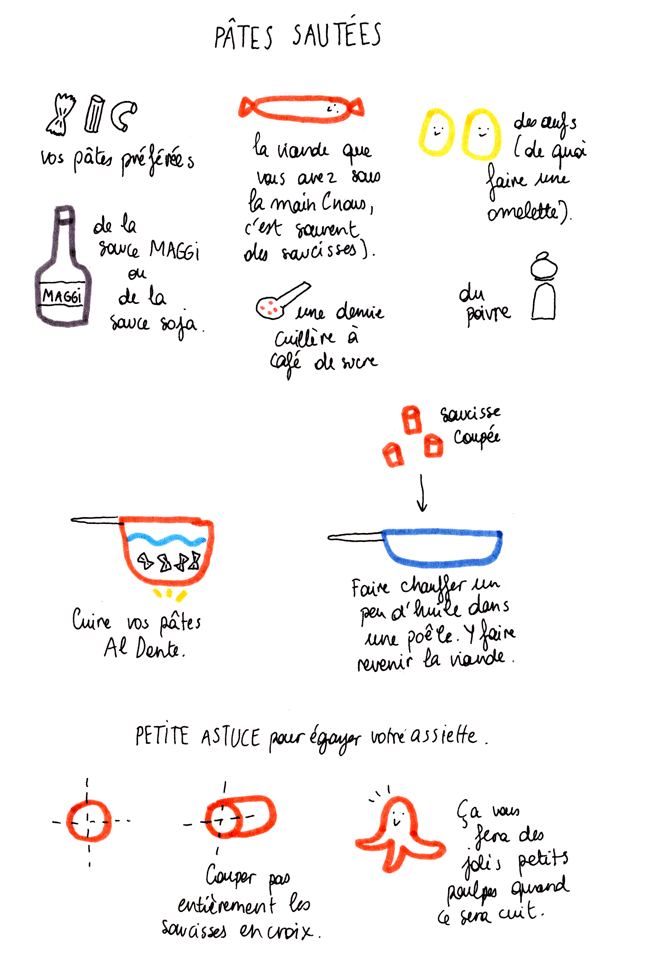 PÂTES SAUTÉES
vos pâtes préférées
la viande que
vous avez sous
la main (nous,
c'est souvent
des saucisses).
des œufs
(de quoi
faire une
omelette).
de la
sauce MAGGi
ou
de la
sauce soja.
MAGGi
une demie
cuillère à
café de sucre
du
poivre
saucisse
coupée
Cuire vos pâtes
Al Dente.
Faire chauffer un
peu d'huile dans
une poêle. Y faire
revenir la viande.
PETITE ASTUCE pour égayer votre assiette.
Couper pas
entièrement les
saucisses en croix.
Ça vous
fera des
jolis petits
poulpes quand
ce sera cuit.